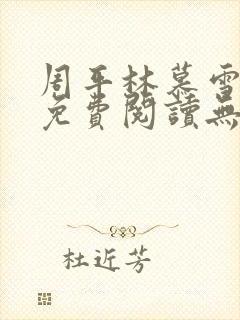 周平林慕雪
免費閱讀無
杜近芳